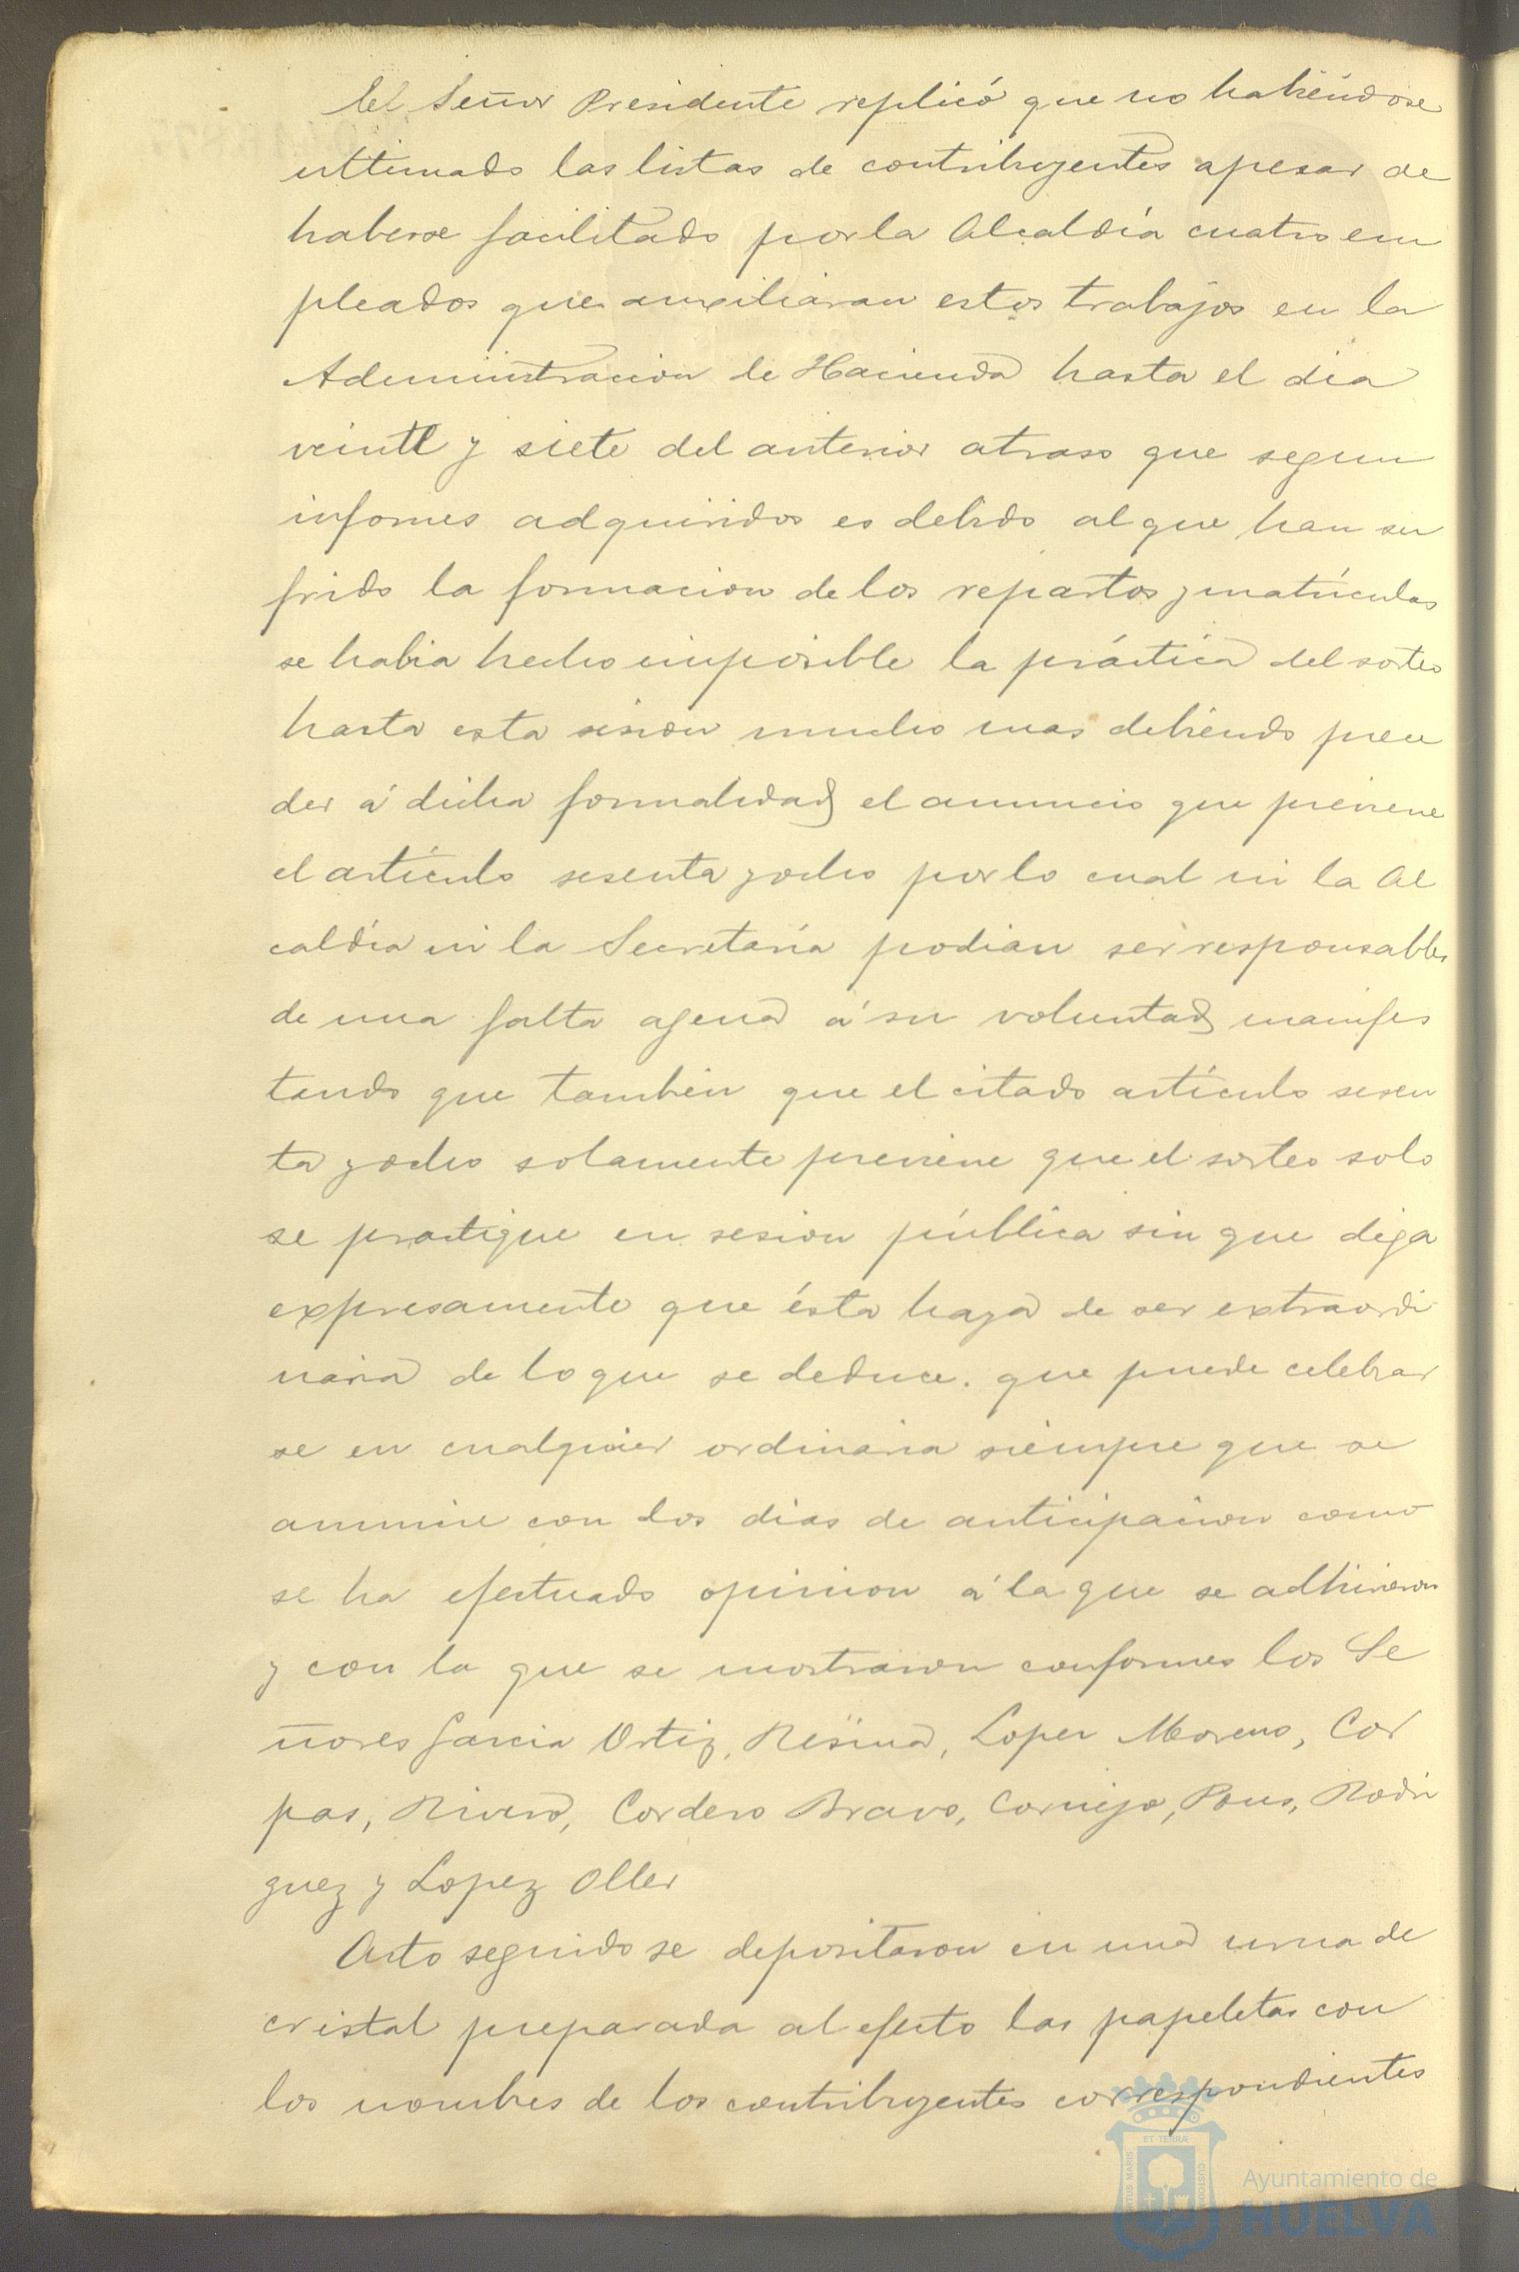 El Señor Presidente replicó que no habiéndose
ultimado las listas de contribuyentes apesar de
haberse facilitado por la Alcaldía cuatro em
pleados que auxiliaran estos trabajos en la
Administracion de Hacienda hasta el dia
veinte y siete del anterior atraso que segun
informes adquiridos es debido al que han su
frido la formacion de los repartos y matrículas
se habia hecho imposible la práctica del sorteo
hasta esta sesion mucho mas debiendo prece
der á dicha formalidad el anuncio que previene
el artículo sesenta y ocho por lo cual ni la Al
caldía ni la Secretaría podian ser responsables
de una falta agena á su voluntad manifes
tando que tambien que el citado artículo sesen
ta y ocho solamente previene que el sorteo solo
se practique en sesion pública sin que diga
expresamente que ésta haya de ser extraordi
naria de lo que se deduce. que puede celebrar
se en cualquier ordinaria siempre que se
anuncie con dos dias de anticipacion como
se ha efectuado opinion á la que se adhirieron
y con la que se mostraron conformes los Se
ñores Garcia Ortiz, Resina, Lopez Moreno, Cor
pas, Rivero, Cordero Bravo, Cornejo, Pons, Rodri
guez y Lopez Oller
Acto seguido se depositaron en una urna de
cristal preparada al efecto las papeletas con
los nombres de los contribuyentes correspondientes
ET TERRÆ
Ayuntamiento de
HUELVA